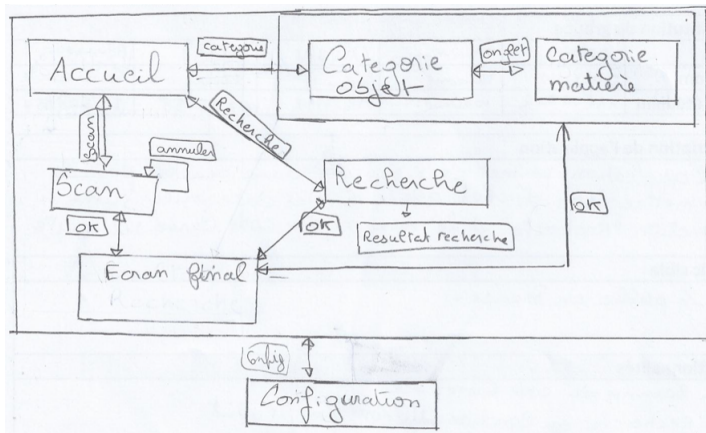 Accueil
categorie
Categorie
objet
onglet
Categorie
matière
Scan
Recherche
annuler
Scan
Recherche
OK
OK
Resultat recherche
OK
Ecran final
Config
Configuration